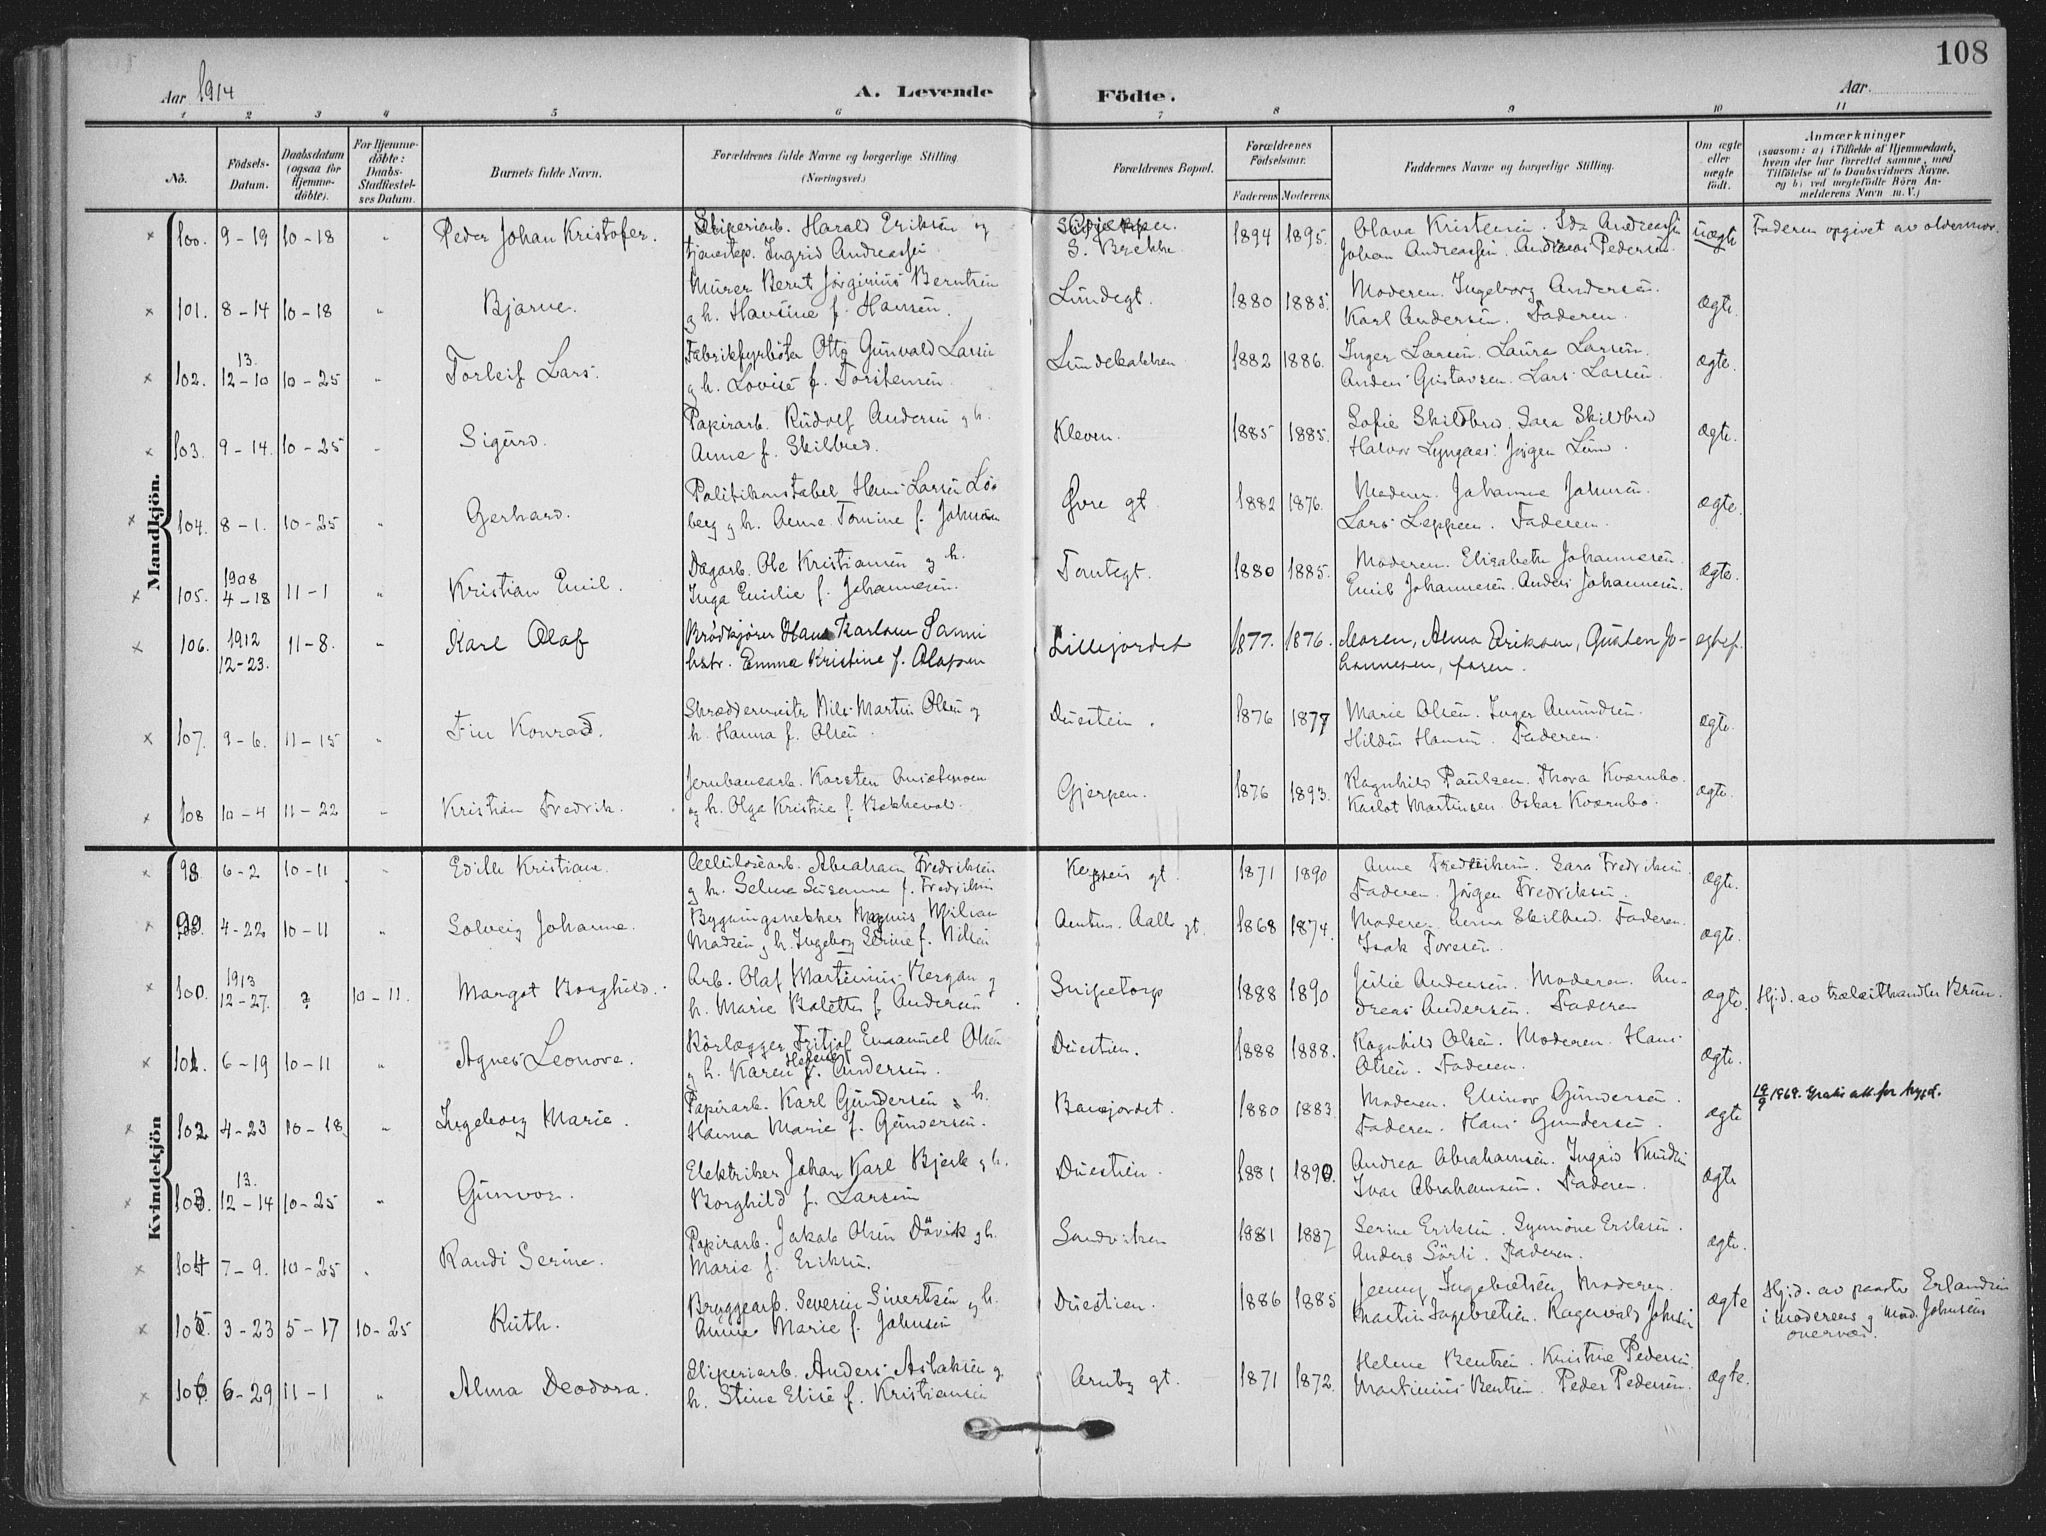 108
Aar 1914
A. Levende Födte.
Aar.
1 2 3 4 5 6 7 8 9 10 11
No.
Födsels-Datum.
Daabsdatum (ogsaa for Hjemme-döbte).
For Hjemme-döbte: Daabs-Stadfæstel-ses Datum.
Barnets fulde Navn.
Forældrenes fulde Navne og borgerlige Stilling (Næringsvei.)
Forældrenes Bopæl.
Forældrenes Födselsaar.
Faderens Moderens.
Faddernes Navne og borgerlige Stilling.
Om ægte eller uægte födt.
Anmærkninger
(saasom: a) i Tilfælde af Hjemmedaab, hvem der har forrettet samme, med Tilföielse af to Daabsvidners Navne, og b) ved uægtefödte Börn An-melderens Navn m. V.)
Mandkjön.
100. 9-19 10-18 " Peder Johan Kristofer. Sliperiarb. Harald Eriksen og
tjenestep. Ingrid Andreassen
Gjerpen.
S. Brekke
1894 1895. Olava Kristensen. Ida Andreassen
Johan Andreassen. Andreas Pedersen.
uægte Faderen opgivet av oldermor.
101. 8-14 10-18 " Bjarne. Murer Bernt Jörginius Berntsen
g h. Hansine f. Hansen.
Lundegt. 1880 1885. Moderen. Ingeborg Andersen.
Karl Andersen. Faderen.
ægte.
102. 13. 12-10 10-25 " Torleif Lars. Fabrikfyrböter Otto Gunvald Larsen
g h. Lovise f. Torstensen.
Lundebakken 1882 1886. Inger Larsen. Laura Larsen.
Anders Gustavsen. Lars Larsen.
ægte.
103. 9-14. 10-25 " Sigurd. Papirarb. Rudolf Andersen g h.
Anna f. Skilbred.
Kleven. 1885 1885. Sofie Skilbred. Sara Skilbred
Halvor Lyngaas. Jörgen Lund.
ægte.
104. 8-1. 10-25 " Gerhard. Politikonstabel Hans Larsen Lö-
berg g h. Anne Tomine f. Johnsen
Øvre gt. 1882 1876. Moderen. Johanna Johnsen.
Lars Leppen. Faderen.
ægte.
105. 1908 4-18 11-1 " Kristian Emil. Dagarb. Ole Kristiansen g h.
Inga Emilie f. Johannesen.
Tomtegt. 1880 1885. Moderen. Elisabeth Johannesen.
Emil Johannesen. Anders Johannesen.
ægte.
106. 1912 12-23. 11-8. " Karl Olaf Brödkjörer Hans Karlsen
hstr. Emma Kristine f. Olafsen
Lillejordet 1877. 1876. Moren, Alma Eriksen, Jo-
hannesen, faren.
107. 9-6. 11-15 " Fin Konrad. Skreddermester Nils Martin Olsen g
h. Hanna f. Olsen.
Duestien. 1876 1877 Marie Olsen. Inger Amundsen.
Hildus Hansen. Faderen.
ægte.
108 10-4 11-22 " Kristian Fredrik. Jernbanearb. Karsten
og h. Olga Kristine f. Bekkevold.
Gjerpen. 1876 1893. Ragnhild Paulsen. Thora Kværnbo.
Karlot Martinsen. Oskar Kværnbo.
ægte.
Kvindekjön
98 6-2 10-11 " Edith Kristiane. Cellulosearb. Abraham Fredriksen
g h. Selma Susanne f. Fredriksen
gt. 1871 1890 Anne Fredriksen. Sara Fredriksen.
Faderen. Jörgen Fredriksen.
ægte.
99. 4-22 10-11 " Solveig Johanne. Bygningssnekker Magnus
Madsen g h. Ingeborg Serine f. Nilsen
Amtm. Aalls gt. 1868 1874. Moderen Anna Skilbred. Faderen.
Isak Toresen.
ægte.
100. 1913 12-27. ? 10-11. Margot Borghild. Arb. Olaf Martinius Bergan g
h. Marie Bolette f. Andersen
Snipetorp 1888 1890 Julie Andersen. Moderen. An-
dreas Andersen. Faderen
ægte. Hjd. av trælasthandler Bruun.
101. 6-19 10-11 " Agnes Leonore. Rörlægger Fritjof Emanuel Olsen
g h. Karen Helene f. Andersen.
Duestien. 1888 1888. Ragnhild Olsen. Moderen. Hans
Olsen. Faderen.
ægte.
102 4-23 10-18. " Ingeborg Marie. Papirarb. Karl Gundersen g h.
Hanna Marie f. Gundersen.
Bakejordet. 1880 1883. Moderen. Ellinor Gundersen.
Faderen. Hans Gundersen.
ægte 19/9 1969. Gratis att. for trygd.
103. 13. 12-14 10-25 " Gunvor. Elektriker Johan Karl Bjerk g h.
Borghild f. Larsen
Duestien. 1881 1890. Andrea Abrahamsen. Ingrid Knudsen
Ivar Abrahamsen. Faderen.
ægte
104 7-9. 10-25 " Randi Serine. Papirarb. Jakob Olsen Dövik g h.
Marie f. Eriksen.
Sandviken 1881 1887 Serine Eriksen. Synnöve Eriksen.
Anders Sörli. Faderen.
ægte.
105 3-23 5-17 10-25 Ruth. Bryggearb. Severin Sivertsen g h.
Anne Marie f. Johnsen
Duestien. 1886 1885 Jenny Ingebretsen Moderen.
Martin Ingebretsen. Ragnvald Johnsen
ægte Hjd. av pastor Erlandsen
i Moderens g Mad. Johnsens
overvær.
106 6-29 11-1 " Alma Deodora. Sliperiarb. Anders Aslaksen g
h. Stine Elise f. Kristiansen
Arnby gt. 1871 1872. Helene Bentsen. Kristine Pedersen.
Martinius Bentsen. Peder Pedersen.
ægte.